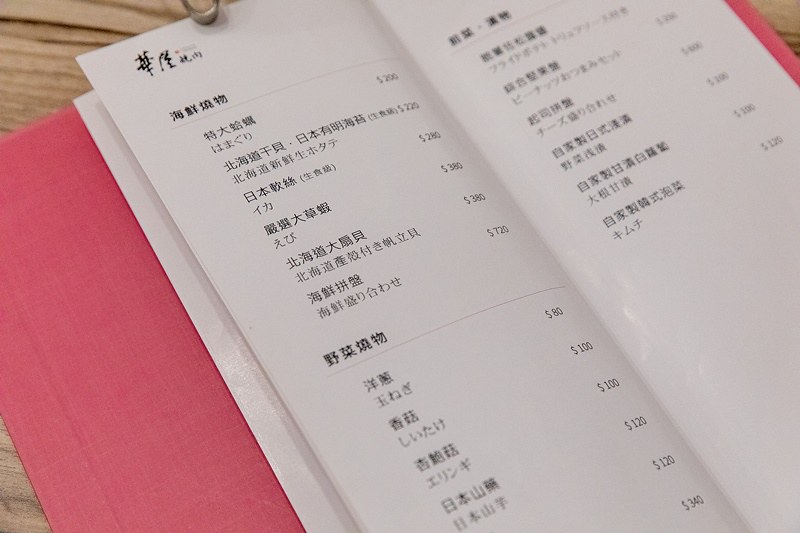 華屋 燒肉
海鮮燒物
特大蛤蠣 $200
はまぐり
北海道干貝．日本有明海苔 (生食級) $220
北海道新鮮生ホタテ
日本軟絲 (生食級) $280
イカ
嚴選大草蝦 $380
えび
北海道大扇貝 $380
北海道產殼付き帆立貝
海鮮拼盤 $720
海鮮盛り合わせ
野菜燒物
洋蔥 $80
玉ねぎ
香菇 $100
しいたけ
杏鮑菇 $100
エリンギ
日本山藥 $120
日本山芋
$120
$340
前菜．漬物
脆薯佐松露醬 $200
フライドポテト トリュフソース付き
綜合堅果盤 $600
ピーナッツおつまみセット
起司拼盤 $100
チーズ盛り合わせ
自家製日式淺漬 $100
野菜浅漬
自家製甘漬白蘿蔔 $120
大根甘漬
自家製韓式泡菜
キムチ